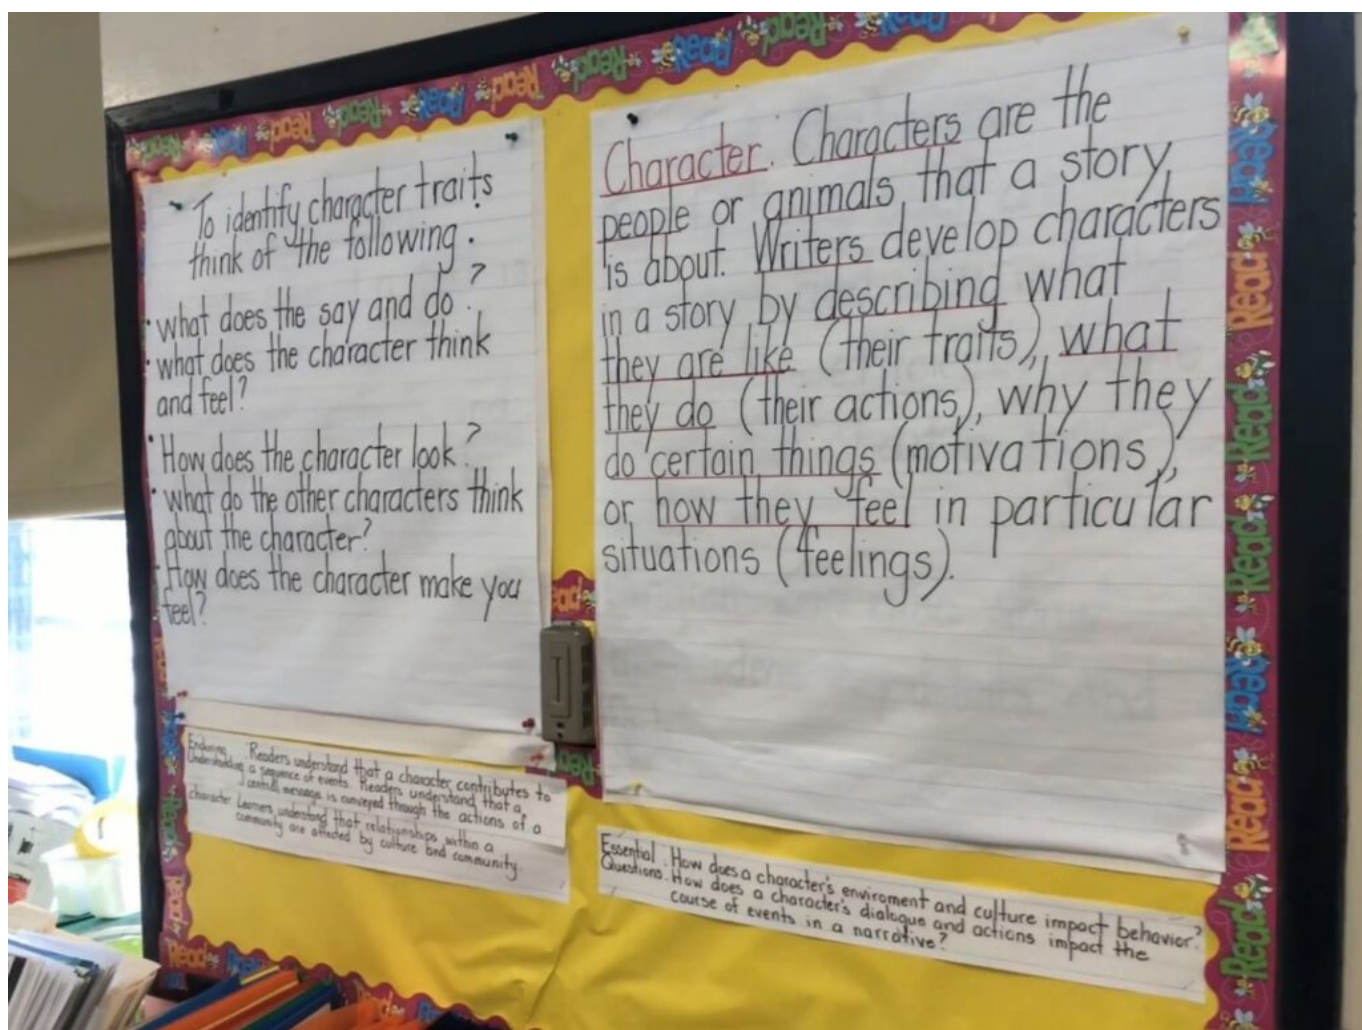 To identify character traits
think of the following:
• what does the say and do?
• what does the character think
and feel?
• How does the character look?
• what do the other characters think
about the character?
• How does the character make you
feel?
Character. Characters are the
people or animals that a story
is about. Writers develop characters
in a story by describing what
they are like (their traits), what
they do (their actions), why they
do certain things (motivations),
or how they feel in particular
situations (feelings).
Enduring Readers understand that a character contributes to
Understanding a sequence of events. Readers understand that a
central message is conveyed through the actions of a
character Learners understand that relationships within a
community are affected by culture and community.
Essential . How does a character's enviroment and culture impact behavior?
Questions. How does a character's dialogue and actions impact the
course of events in a narrative?
Read